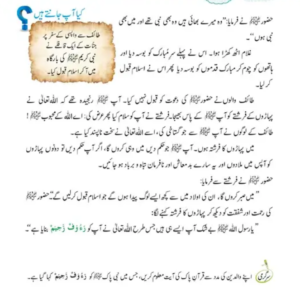 کیا آپ جانتے ہیں
?
طائف سے واپسی کے سفر پر
جنات کے ایک قافلے نے
نبی کریم ﷺ کی بارگاہ
میں آ کر اسلام قبول کیا۔
حضور ﷺ نے فرمایا: "وہ میرے بھائی ہیں وہ بھی نبی تھے اور میں بھی
نبی ہوں۔"
غلام اٹھ کھڑا ہوا۔ اس نے پہلے سر مبارک کو بوسہ دیا اور
ہاتھوں کو چوم کر مبارک قدموں کو بوسہ دیا پھر اس نے اسلام قبول کیا۔
طائف والوں نے حضور ﷺ کی دعوت کو قبول نہیں کیا۔ آپ ﷺ رنجیدہ تھے کہ اللہ تعالی نے
پہاڑوں کے فرشتے کو آپ کے پاس بھیجا۔ فرشتے نے آپ ﷺ کو سلام کیا پھر عرض کی: اے اللہ کے محبوب ﷺ!
طائف کے لوگوں نے آپ ﷺ سے جو گستاخی کی، اسے اللہ تعالی نے سخت ناپسند کیا ہے۔
میں پہاڑوں کا فرشتہ ہوں۔ آپ ﷺ جو حکم دیں میں وہی کروں گا، اگر آپ حکم دیں تو میں دونوں پہاڑوں
کو آپس میں ملا دوں اور یہ سارے بدمعاش اور نافرمان تباہ و برباد ہو جائیں۔
حضور ﷺ نے فرشتے سے فرمایا:
"میں صبر کروں گا۔ ان کی اولاد میں سے کچھ ایسے لوگ پیدا ہوں گے جو اسلام قبول کر لیں گے۔" حضور ﷺ
کی رحمت اور شفقت کو دیکھ کر پہاڑوں کا فرشتہ کہنے لگا:
"یا رسول اللہ ﷺ بے شک آپ ایسے ہی ہیں جس طرح اللہ تعالی نے آپ کو رَءُوفٌ رَّحِیْمٌ بنایا ہے"۔
سرگرمی
اپنے والدین کی مدد سے قرآن پاک کی آیت معلوم کریں، جس میں نبی پاک ﷺ کو رَءُوفٌ رَّحِیْمٌ کہا گیا ہے۔